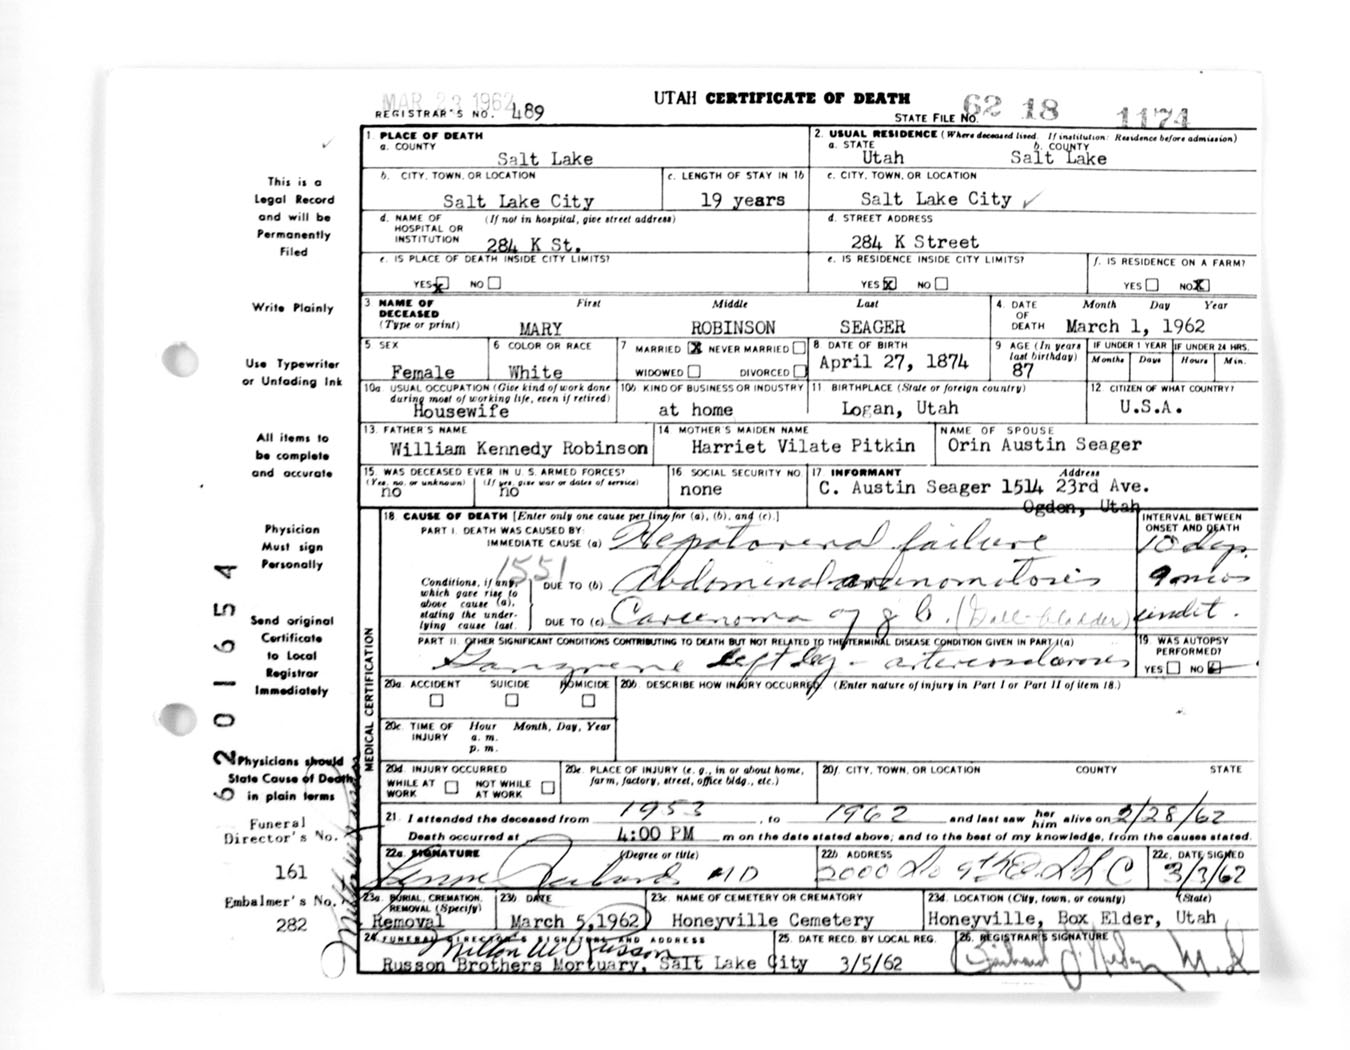 MAR 23 1962
REGISTRAR'S NO. 489
UTAH CERTIFICATE OF DEATH
STATE FILE NO. 62 18 1174
This is a
Legal Record
and will be
Permanently
Filed
Write Plainly
Use Typewriter
or Unfading Ink
All items to
be complete
and accurate
Physician
Must sign
Personally
Send original
Certificate
to Local
Registrar
Immediately
Physicians should
State Cause of Death
in plain terms
Funeral
Director's No.
161
Embalmer's No.
282
6201654
1. PLACE OF DEATH
a. COUNTY
Salt Lake
2. USUAL RESIDENCE (Where deceased lived. If institution: Residence before admission)
a. STATE b. COUNTY
Utah Salt Lake
b. CITY, TOWN, OR LOCATION
Salt Lake City
c. LENGTH OF STAY IN 1b
19 years
c. CITY, TOWN, OR LOCATION
Salt Lake City ✓
d. NAME OF HOSPITAL OR INSTITUTION (If not in hospital, give street address)
284 K St.
d. STREET ADDRESS
284 K Street
e. IS PLACE OF DEATH INSIDE CITY LIMITS?
YES X NO
e. IS RESIDENCE INSIDE CITY LIMITS?
YES X NO
f. IS RESIDENCE ON A FARM?
YES NO X
3 NAME OF DECEASED (Type or print) First Middle Last
MARY ROBINSON SEAGER
4. DATE OF DEATH Month Day Year
March 1, 1962
5 SEX
Female
6 COLOR OR RACE
White
7 MARRIED X NEVER MARRIED
WIDOWED DIVORCED
8 DATE OF BIRTH
April 27, 1874
9 AGE (In years last birthday)
87
IF UNDER 1 YEAR IF UNDER 24 HRS.
Months Days Hours Min.
10a USUAL OCCUPATION (Give kind of work done during most of working life, even if retired)
Housewife
10b KIND OF BUSINESS OR INDUSTRY
at home
11 BIRTHPLACE (State or foreign country)
Logan, Utah
12 CITIZEN OF WHAT COUNTRY?
U.S.A.
13. FATHER'S NAME
William Kennedy Robinson
14 MOTHER'S MAIDEN NAME
Harriet Vilate Pitkin
NAME OF SPOUSE
Orin Austin Seager
15 WAS DECEASED EVER IN U. S. ARMED FORCES?
(Yes, no, or unknown) (If yes, give war or dates of service)
no no
16 SOCIAL SECURITY NO.
none
17 INFORMANT Address
C. Austin Seager 1514 23rd Ave.
Ogden, Utah
MEDICAL CERTIFICATION
18 CAUSE OF DEATH [Enter only one cause per line for (a), (b), and (c).]
INTERVAL BETWEEN ONSET AND DEATH
PART I. DEATH WAS CAUSED BY:
IMMEDIATE CAUSE (a) Hepatorenal failure 10 days
1551
Conditions, if any, which gave rise to above cause (a), stating the underlying cause last.
DUE TO (b) Abdominal carcinomatosis 9 mos
DUE TO (c) Carcinoma of g b. (Gall-bladder) undet.
PART II. OTHER SIGNIFICANT CONDITIONS CONTRIBUTING TO DEATH BUT NOT RELATED TO THE TERMINAL DISEASE CONDITION GIVEN IN PART I(a)
Gangrene left leg - arteriosclerosis
19 WAS AUTOPSY PERFORMED?
YES NO
20a. ACCIDENT SUICIDE HOMICIDE
20b. DESCRIBE HOW INJURY OCCURRED. (Enter nature of injury in Part I or Part II of item 18.)
20c. TIME OF INJURY Hour Month, Day, Year
a. m.
p. m.
20d INJURY OCCURRED
WHILE AT WORK NOT WHILE AT WORK
20e. PLACE OF INJURY (e. g., in or about home, farm, factory, street, office bldg., etc.)
20f. CITY, TOWN, OR LOCATION COUNTY STATE
21. I attended the deceased from 1953, to 1962 and last saw her him alive on 2/28/62
Death occurred at 4:00 PM m on the date stated above; and to the best of my knowledge, from the causes stated.
22a. SIGNATURE (Degree or title)
Richards MD
22b ADDRESS
2000 So 9th E. S L C
22c. DATE SIGNED
3/3/62
23a. BURIAL, CREMATION, REMOVAL (Specify)
Removal
23b. DATE
March 5, 1962
23c. NAME OF CEMETERY OR CREMATORY
Honeyville Cemetery
23d. LOCATION (City, town, or county) (State)
Honeyville, Box Elder, Utah
24 FUNERAL DIRECTOR'S SIGNATURE AND ADDRESS
Milton W Russon
Russon Brothers Mortuary, Salt Lake City
25. DATE RECD. BY LOCAL REG.
3/5/62
26. REGISTRAR'S SIGNATURE